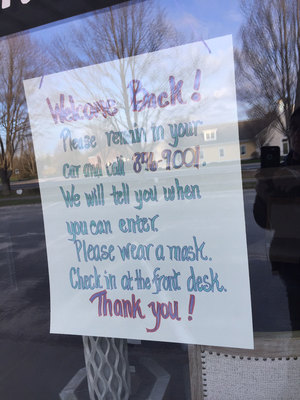 Welcome Back!
Please remain in your
Car and call 896-9001.
We will tell you when
you can enter.
Please wear a mask.
Check in at the front desk.
Thank you!